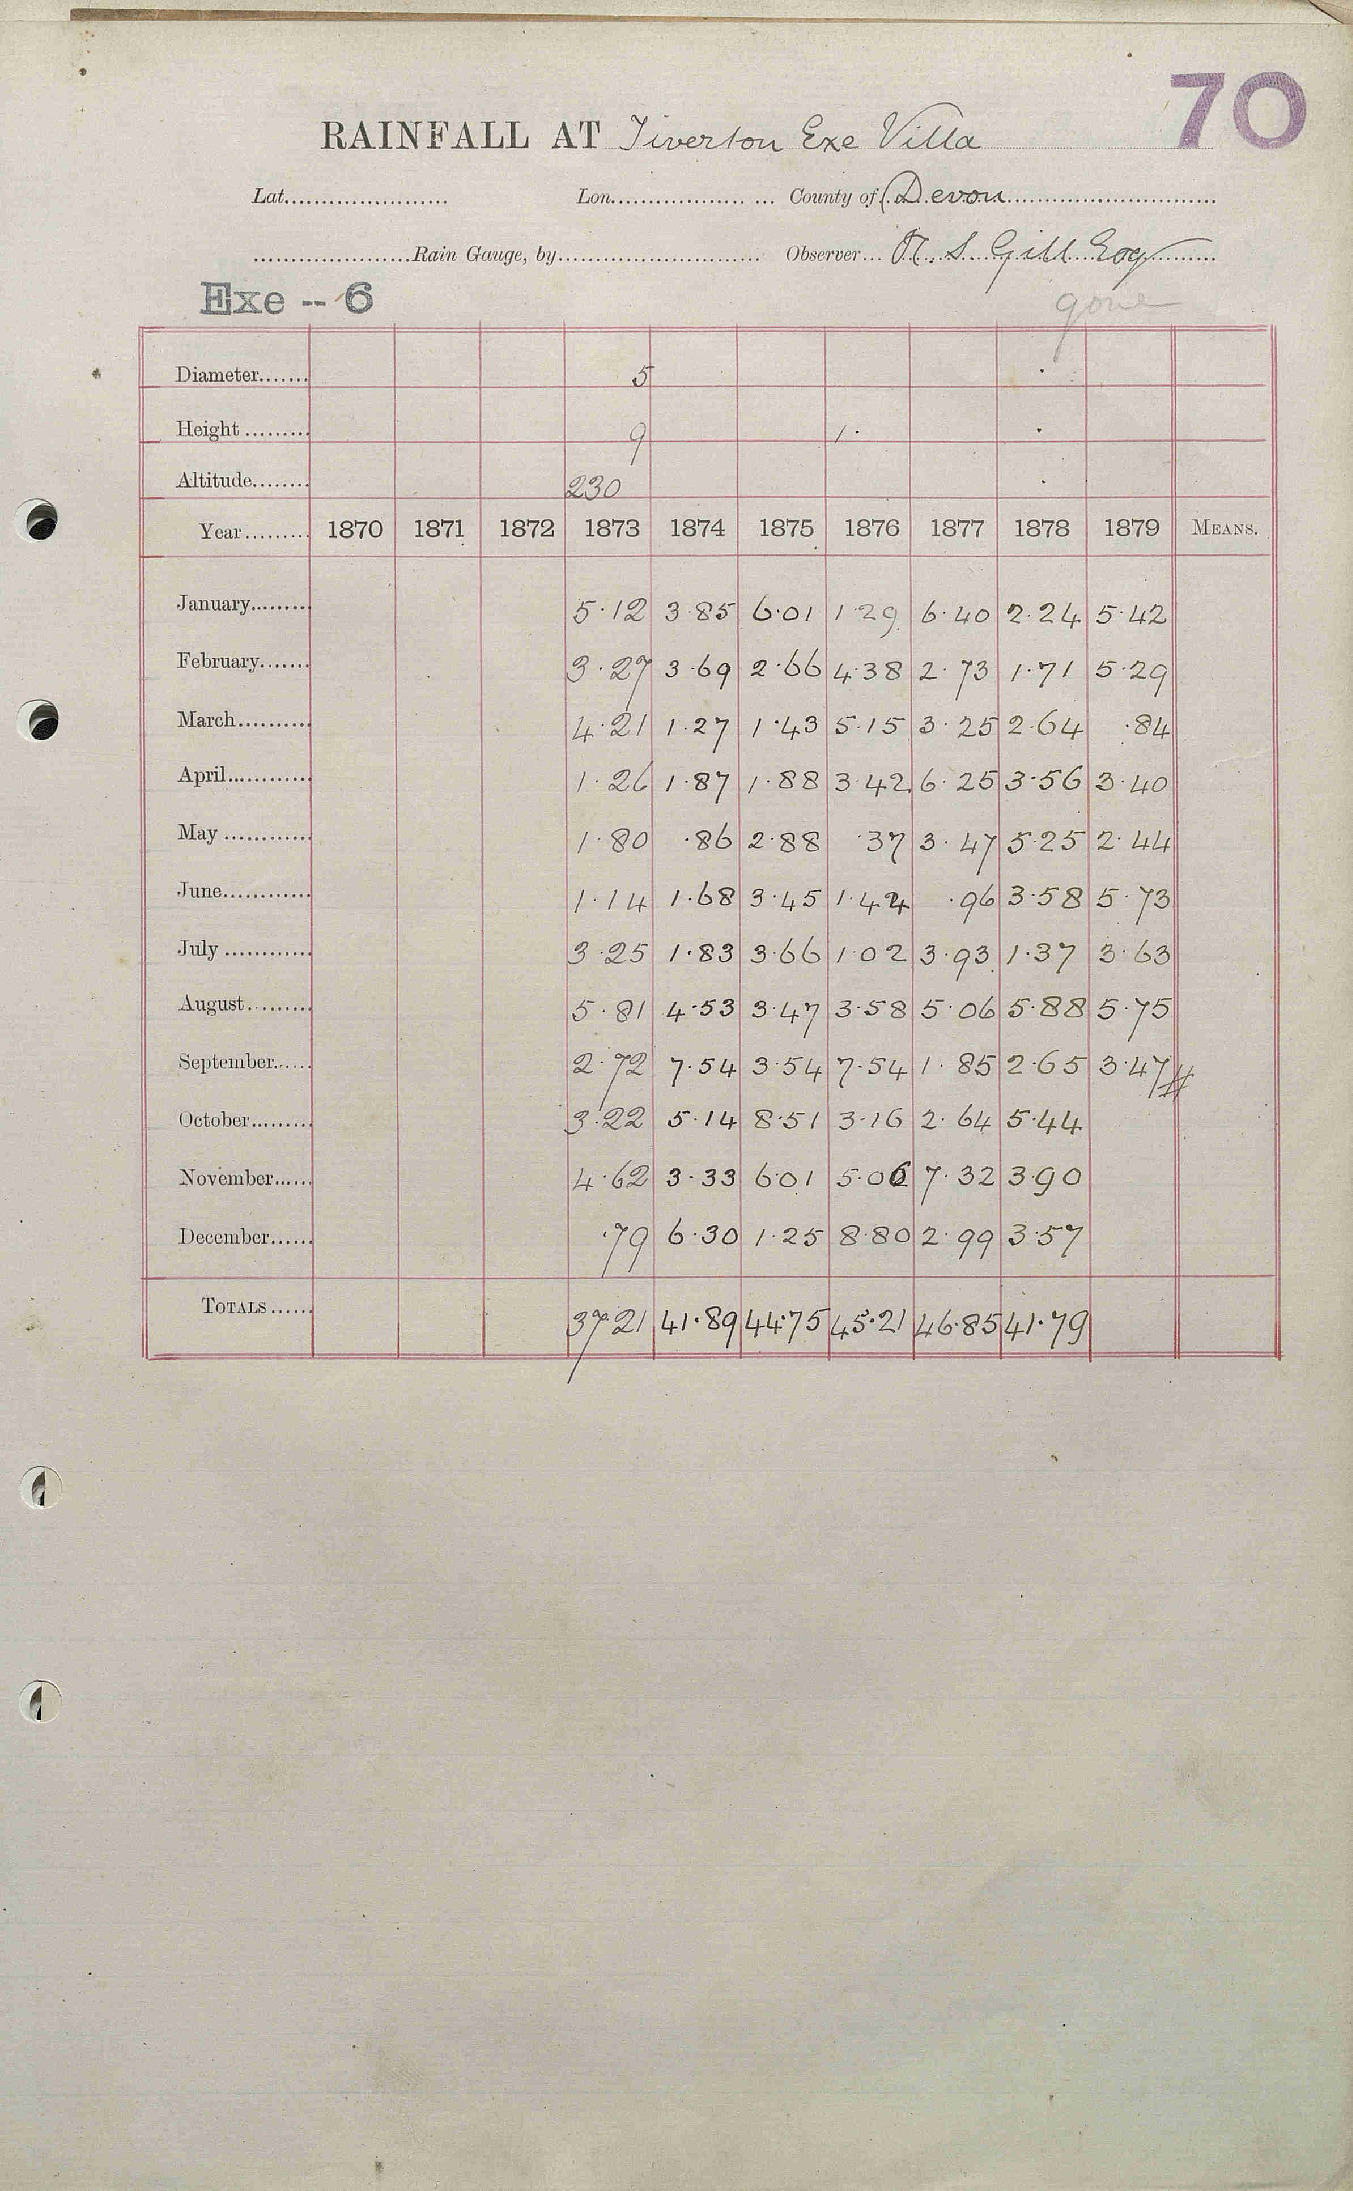 70
RAINFALL AT Tiverton Exe Villa
Lat. Lon. County of Devon
Rain Gauge, by Observer S. Gill Esq
Exe -- 6 gone
Diameter 5
Height 9 1·
Altitude 230
Year 1870 1871 1872 1873 1874 1875 1876 1877 1878 1879 MEANS.
January 5·12 3·85 6·01 1·29 6·40 2·24 5·42
February 3·27 3·69 2·66 4·38 2·73 1·71 5·29
March 4·21 1·27 1·43 5·15 3·25 2·64 ·84
April 1·26 1·87 1·88 3·42 6·25 3·56 3·40
May 1·80 ·86 2·88 ·37 3·47 5·25 2·44
June 1·14 1·68 3·45 1·44 ·96 3·58 5·73
July 3·25 1·83 3·66 1·02 3·93 1·37 3·63
August 5·81 4·53 3·47 3·58 5·06 5·88 5·75
September 2·72 7·54 3·54 7·54 1·85 2·65 3·47 //
October 3·22 5·14 8·51 3·16 2·64 5·44
November 4·62 3·33 6·01 5·06 7·32 3·90
December ·79 6·30 1·25 8·80 2·99 3·57
TOTALS 37·21 41·89 44·75 45·21 46·85 41·79